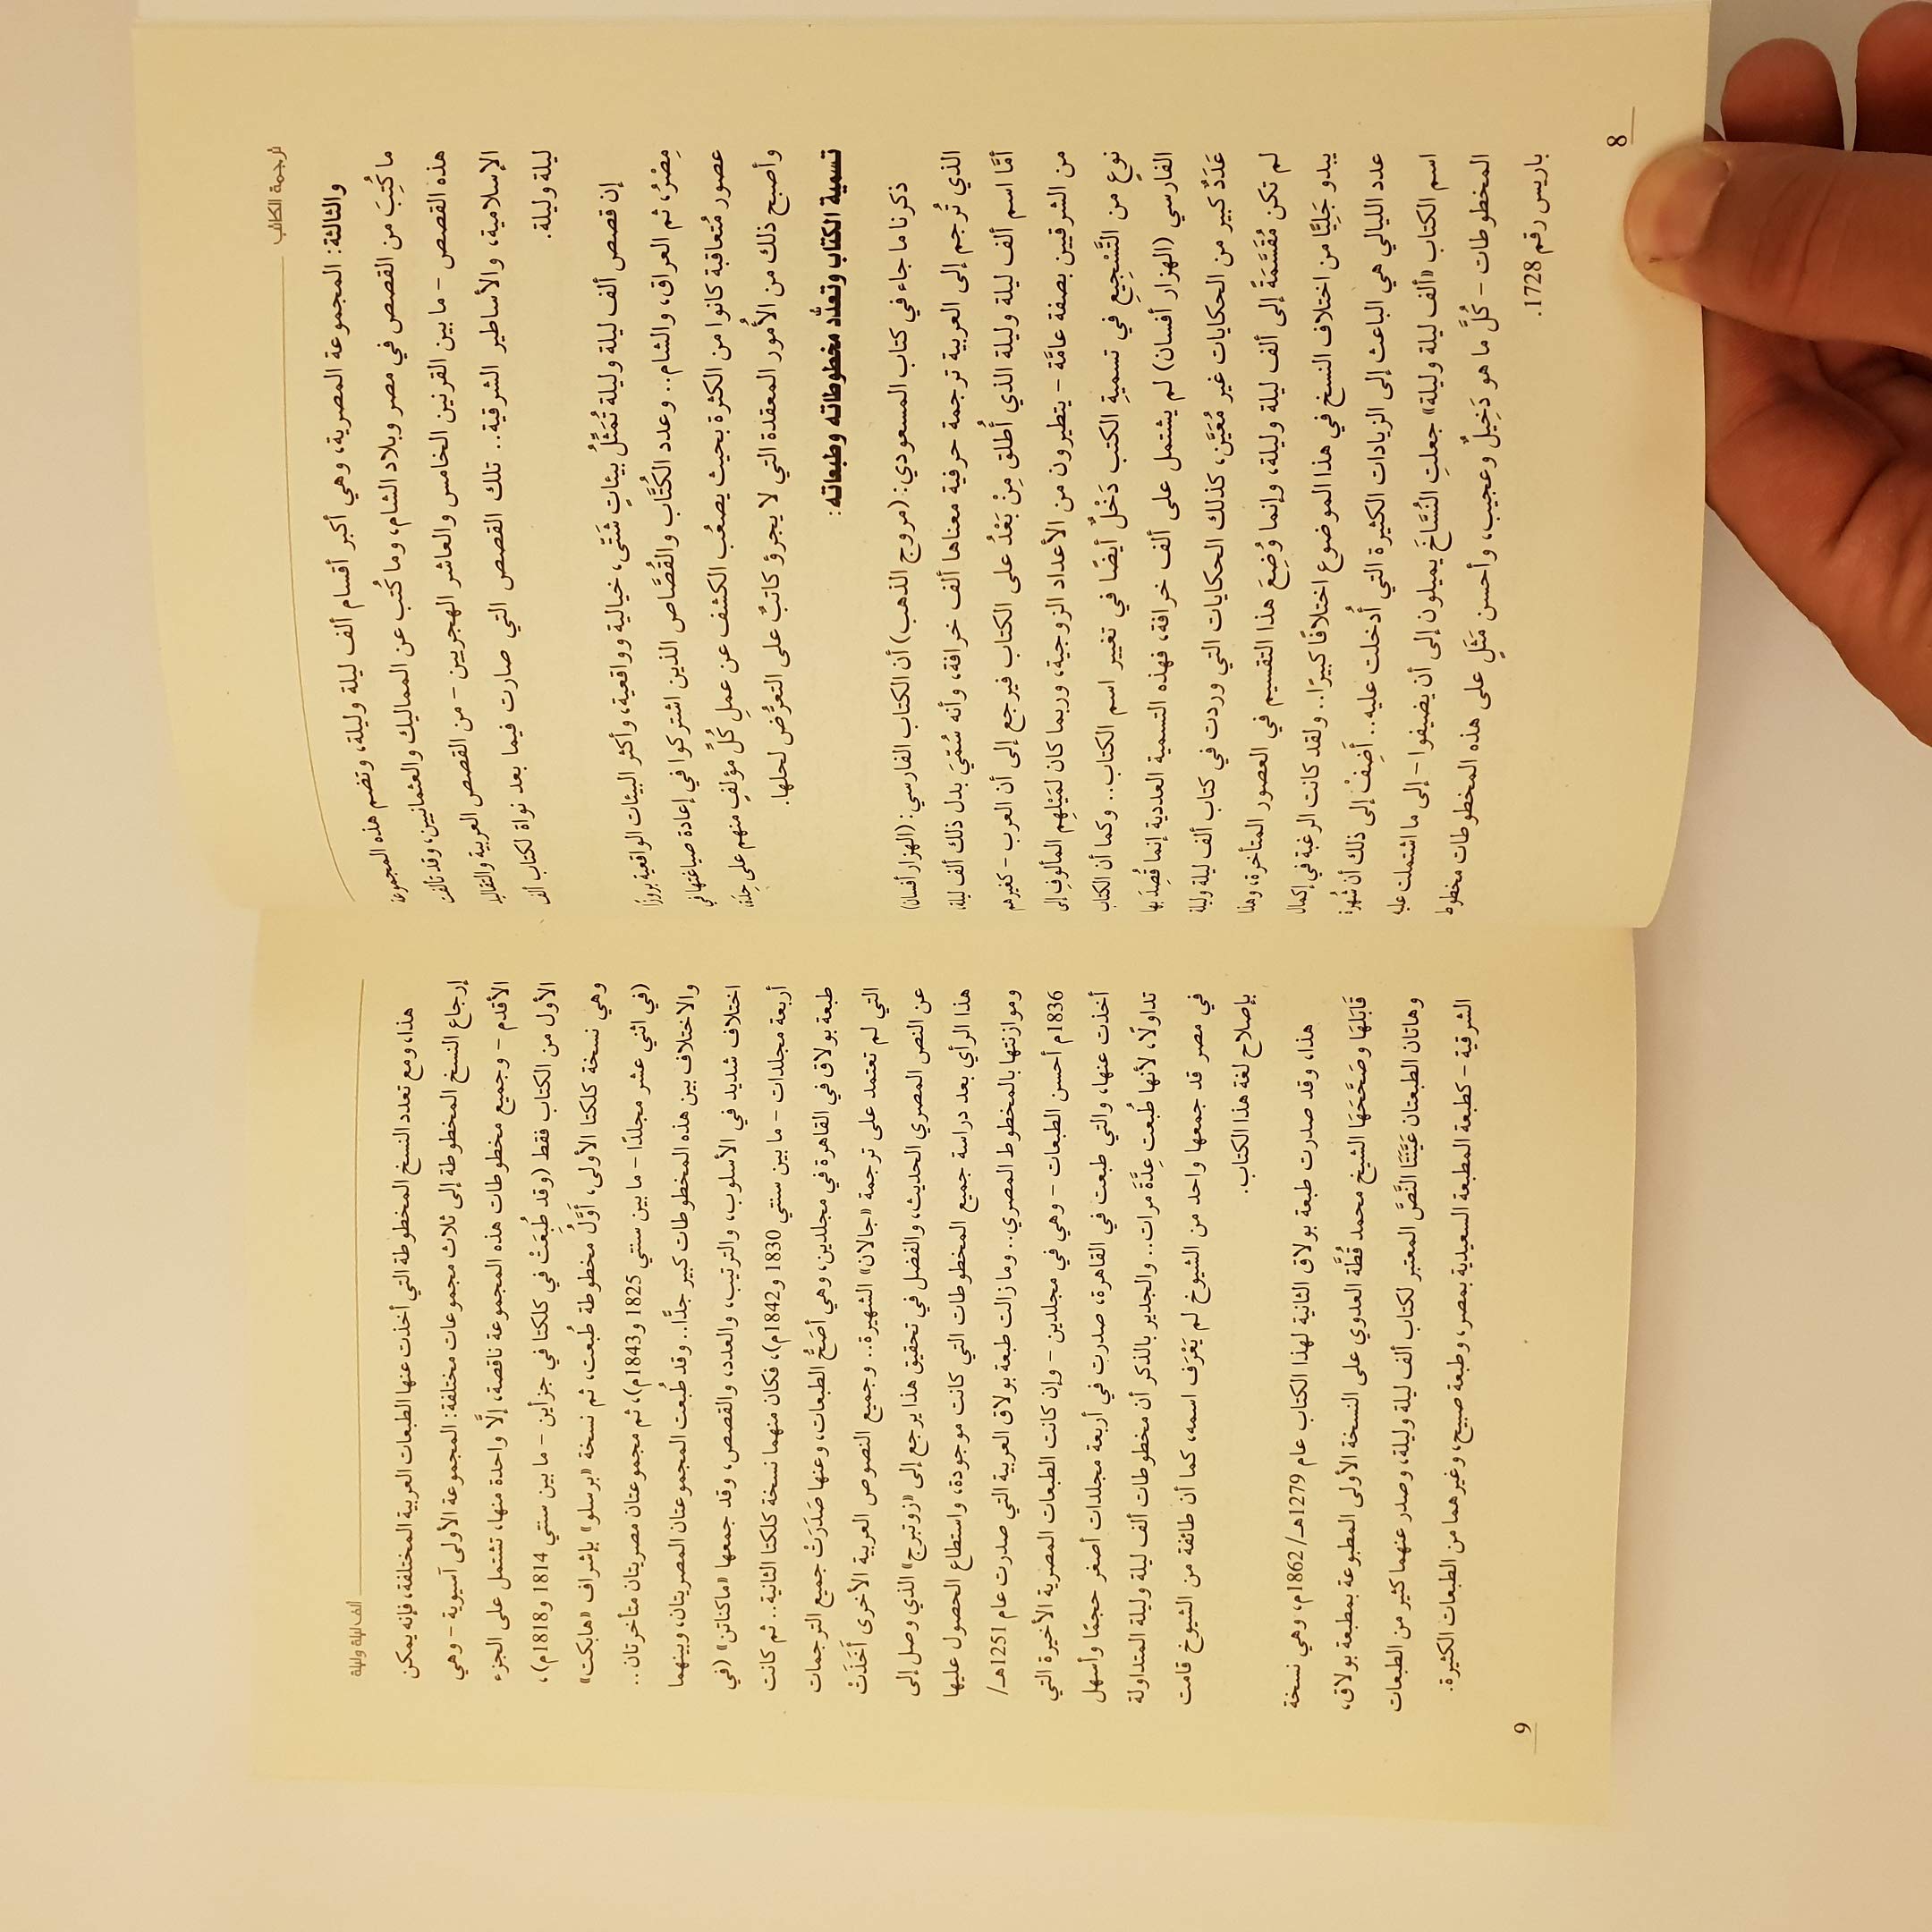 ترجمة الكتاب
والثالثة: المجموعة المصرية، وهي أكبر أقسام ألف ليلة وليلة، وتضم هذه المجموعة
ما كُتِبَ من القصص في مصر وبلاد الشام، وما كُتب عن المماليك والعثمانيين، وقد تألفت
هذه القصص - ما بين القرنين الخامس والعاشر الهجريين - من القصص العربية والتقاليد
الإسلامية، والأساطير الشرقية.. تلك القصص التي صارت فيما بعد نواة لكتاب ألف
ليلة وليلة.
إن قصص ألف ليلة وليلة تُمَثِّلُ بيئاتٍ شَتَّى، خيالية وواقعية، وأكثر البيئات الواقعية بروزًا
مِصْرُ، ثم العراق، والشام.. وعدد الكُتَّاب والقُصَّاص الذين اشتركوا في إعادة صياغتها في
عصور مُتعاقبة كانوا من الكثرة بحيث يصعُب الكشف عن عملِ كُلِّ مؤلفٍ منهم على حِدَة،
وأصبح ذلك من الأُمور المعقدة التي لا يجرؤ كاتبٌ على التعرُّض لحلها.
تسمية الكتاب وتعدُّد مخطوطاته وطبعاته:
ذكرنا ما جاء في كتاب المسعودي: (مروج الذهب) أن الكتاب الفارسي: (الهزار أفسان)
الذي تُرجم إلى العربية ترجمة حرفية معناها ألف خرافة، وأنه سُمِّيَ بدل ذلك ألف ليلة،
أمَّا اسم ألف ليلة وليلة الذي أُطلق مِنْ بَعْدُ على الكتاب فيرجع إلى أن العرب - كغيرهم
من الشرقيين بصفة عامَّة - يتطيرون من الأعداد الزوجية، وربما كان لمَيْلِهِم المألوفِ إلى
نوعٍ من التَّسْجِيعِ في تسميةِ الكتب دَخْلٌ أيضًا في تغيير اسم الكتاب.. وكما أن الكتاب
الفارسي (الهزار أفسان) لم يشتمل على ألف خرافة، فهذه التسمية العددية إنما قُصِدَ بها
عَدَدٌ كبير من الحكايات غير مُعَيَّن، كذلك الحكايات التي وردت في كتاب ألف ليلة وليلة
لم تكن مُقَسَّمَةً إلى ألف ليلة وليلة، وإنما وُضِعَ هذا التقسيم في العصور المتأخرة، وهذا
يبدو جَلِيًّا من اختلاف النسخ في هذا الموضوع اختلافًا كبيرًا.. ولقد كانت الرغبة في إكمال
عدد الليالي هي الباعث إلى الزيادات الكثيرة التي أُدخلت عليه.. أَضِفْ إلى ذلك أن شُهرة
اسم الكتاب «ألف ليلة وليلة» جعلتِ النُّسَّاخَ يميلون إلى أن يضيفوا - إلى ما اشتملت عليه
المخطوطات - كُلَّ ما هو دَخِيلٌ وعجيب، وأحسن مَثَلٍ على هذه المخطوطات مخطوط
باريس رقم 1728.
8
ألف ليلة وليلة
هذا، ومع تعدد النسخ المخطوطة التي أخذت عنها الطبعات العربية المختلفة، فإنه يمكن
إرجاع النسخ المخطوطة إلى ثلاث مجموعات مختلفة: المجموعة الأولى آسيوية - وهي
الأقدم - وجميع مخطوطات هذه المجموعة ناقصة، إلَّا واحدة منها، تشتمل على الجزء
الأول من الكتاب فقط (وقد طُبِعَتْ في كلكتا في جزأين - ما بين سنتي 1814 و1818م)،
وهي نسخة كلكتا الأولى، أَوَّلُ مخطوطة طُبعت، ثم نسخة «برسلو» بإشراف «هابكت»
(في اثني عشر مجلدًا - ما بين سنتي 1825 و1843م)، ثم مجموعتان مصريتان متأخرتان..
والاختلاف بين هذه المخطوطات كبير جدًّا.. وقد طُبعت المجموعتان المصريتان، وبينهما
اختلاف شديد في الأسلوب، والترتيب، والعدد، والقصص، وقد جمعها «ماكناتن» (في
أربعة مجلدات - ما بين سنتي 1830 و1842م)، فكان منهما نسخة كلكتا الثانية.. ثم كانت
طبعة بولاق في القاهرة في مجلدين، وهي أَصَحُّ الطبعات، وعنها صَدَرَتْ جميع الترجمات
التي لم تعتمد على ترجمة «جالان» الشهيرة.. وجميع النصوص العربية الأخرى أَخَذَتْ
عن النص المصري الحديث، والفضل في تحقيق هذا يرجع إلى «زوتبرج» الذي وصل إلى
هذا الرأي بعد دراسة جميع المخطوطات التي كانت موجودة، واستطاع الحصول عليها
وموازنتها بالمخطوط المصري.. وما زالت طبعة بولاق العربية التي صدرت عام 1251هـ/
1836م أحسن الطبعات - وهي في مجلدين - وإن كانت الطبعات المصرية الأخيرة التي
أخذت عنها، والتي طبعت في القاهرة، صدرت في أربعة مجلدات أصغر حجمًا وأسهل
تداولًا، لأنها طُبعت عِدَّةَ مرات.. والجدير بالذكر أن مخطوطات ألف ليلة وليلة المتداولة
في مصر قد جمعها واحد من الشيوخ لم يَعْرَف اسمه، كما أن طائفة من الشيوخ قامت
بإصلاح لغة هذا الكتاب.
هذا، وقد صدرت طبعة بولاق الثانية لهذا الكتاب عام 1279هـ/1862م، وهي نسخة
قَابَلَهَا وصَحَّحَهَا الشيخ محمد قُطَّة العدوي على النسخة الأولى المطبوعة بمطبعة بولاق،
وهاتان الطبعتان عَيَّنَتَا النَّصَّ المعتبر لكتاب ألف ليلة وليلة، وصدر عنهما كثير من الطبعات
الشرقية - كطبعة المطبعة السعيدية بمصر، وطبعة صبيح، وغيرهما من الطبعات الكثيرة.
9